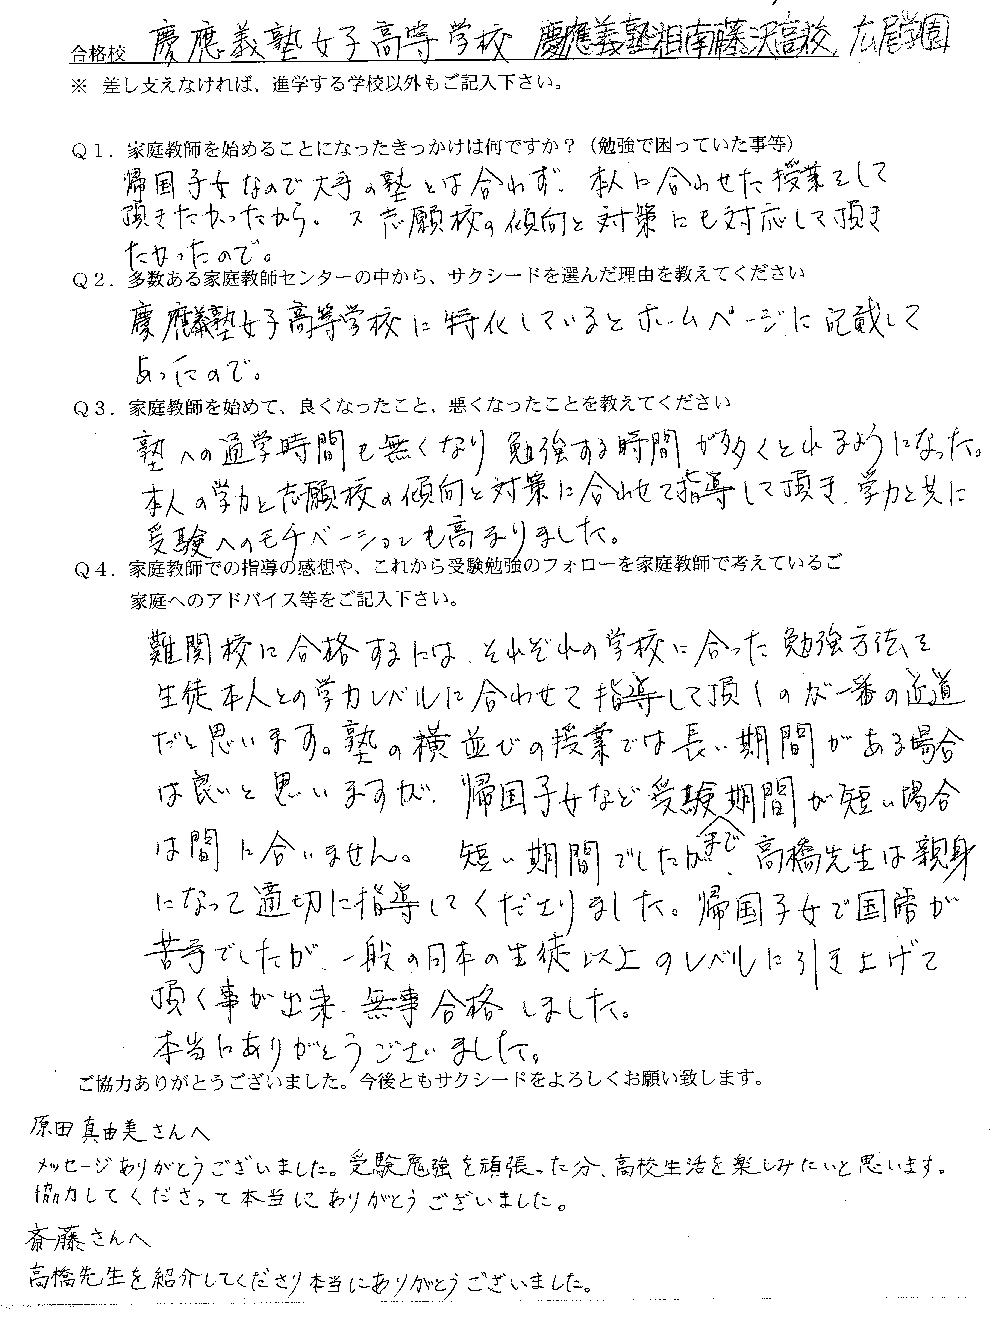 合格校 慶應義塾女子高等学校 慶應義塾湘南藤沢高校 広尾学園
※ 差し支えなければ、進学する学校以外もご記入下さい。
Q1. 家庭教師を始めることになったきっかけは何ですか?(勉強で困っていた事等)
帰国子女なので大手の塾とは合わず、本人に合わせた授業をして
頂きたかったから。又志願校の傾向と対策にも対応して頂き
たかったので。
Q2. 多数ある家庭教師センターの中から、サクシードを選んだ理由を教えてください
慶應義塾女子高等学校に特化しているとホームページに記載して
あったので。
Q3. 家庭教師を始めて、良くなったこと、悪くなったことを教えてください
塾への通学時間も無くなり勉強する時間が多くとれるようになった。
本人の学力と志願校の傾向と対策に合わせて指導して頂き、学力と共に
受験へのモチベーションも高まりました。
Q4. 家庭教師での指導の感想や、これから受験勉強のフォローを家庭教師で考えているご
家庭へのアドバイス等をご記入下さい。
難関校に合格するには、それぞれの学校に合った勉強方法を
生徒本人との学力レベルに合わせて指導して頂くのが一番の近道
だと思います。塾の横並びの授業では長い期間がある場合
は良いと思いますが、帰国子女など受験期間が短い場合
は間に合いません。短い期間でしたがまで、高橋先生は親身
になって適切に指導してくださりました。帰国子女で国語が
苦手でしたが、一般の日本の生徒以上のレベルに引き上げて
頂く事が出来、無事合格しました。
本当にありがとうございました。
ご協力ありがとうございました。今後ともサクシードをよろしくお願い致します。
原田真由美さんへ
メッセージありがとうございました。受験勉強を頑張った分、高校生活を楽しみたいと思います。
協力してくださって本当にありがとうございました。
斎藤さんへ
高橋先生を紹介してくださり本当にありがとうございました。